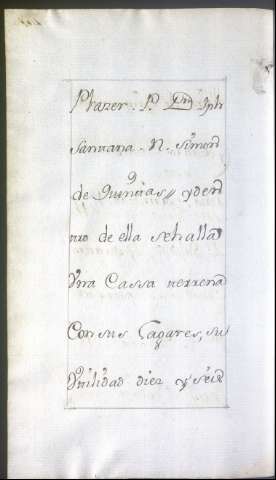 Phazer. P. Dn Jph
Santtana. N. Simon
de Quincias// y den
ttro de ella se halla
Vna Cassa tterrena
Con sus Lagares, su
Vttilidad diez y seis